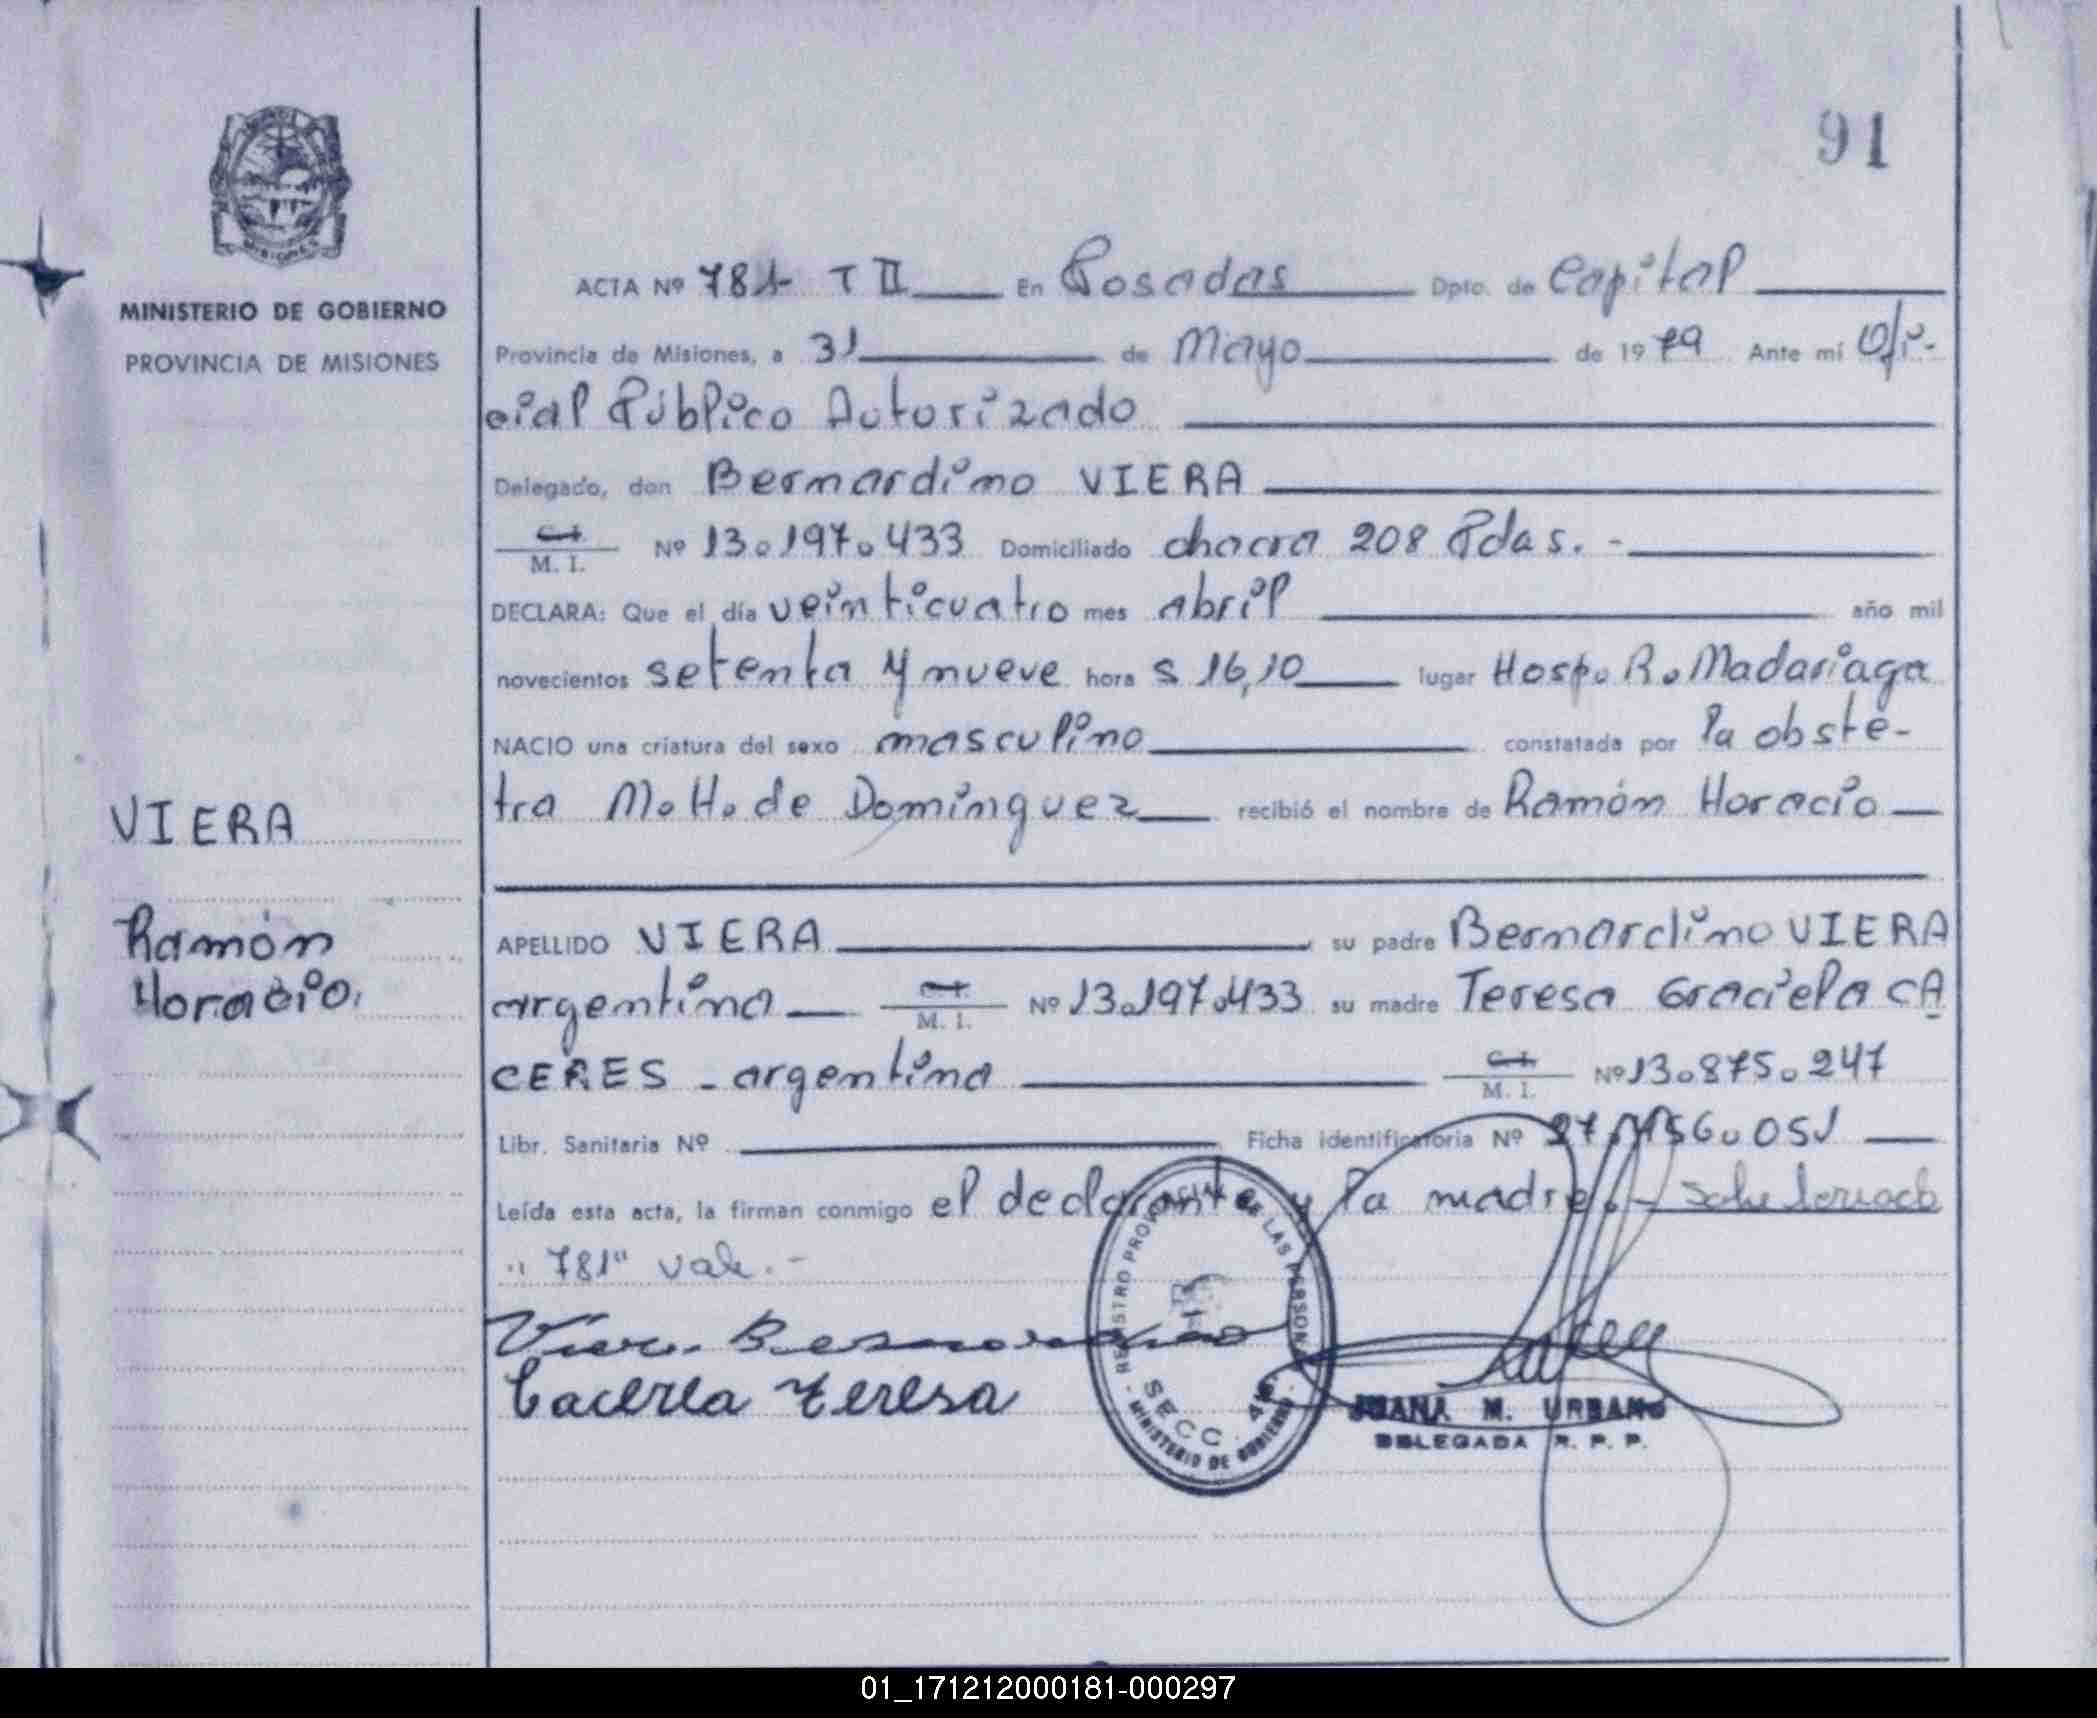 91
MISIONES
MINISTERIO DE GOBIERNO
PROVINCIA DE MISIONES
ACTA Nº 781 T II En Posadas Dpto. de Capital
Provincia de Misiones, a 31 de Mayo de 1979 Ante mí Ofi-
cial Público Autorizado
Delegado, don Bernardino VIERA
C.I.
M. I. Nº 13.197.433 Domiciliado chacra 208 Pdas. -
DECLARA: Que el día veinticuatro mes abril año mil
novecientos setenta y nueve hora s 16,10 lugar Hosp. R. Madariaga
NACIO una criatura del sexo masculino constatada por la obste-
tra M. H. de Domínguez recibió el nombre de Ramón Horacio
VIERA
Ramón
Horacio.
APELLIDO VIERA su padre Bernardino VIERA
argentina C.I.
M. I. Nº 13.197.433 su madre Teresa Graciela CA
CERES - argentina C.I.
M. I. Nº 13.875.247
Libr. Sanitaria Nº Ficha identificatoria Nº 27.156.051
Leída esta acta, la firman conmigo el declarante y la madre. -
"781" vale. -
Viera Bernardino
Caceres Teresa
REGISTRO PROVINCIAL DE LAS PERSONAS
SECC.
MINISTERIO DE GOBIERNO
JUANA M. URBANO
DELEGADA R. P. P.
01_171212000181-000297